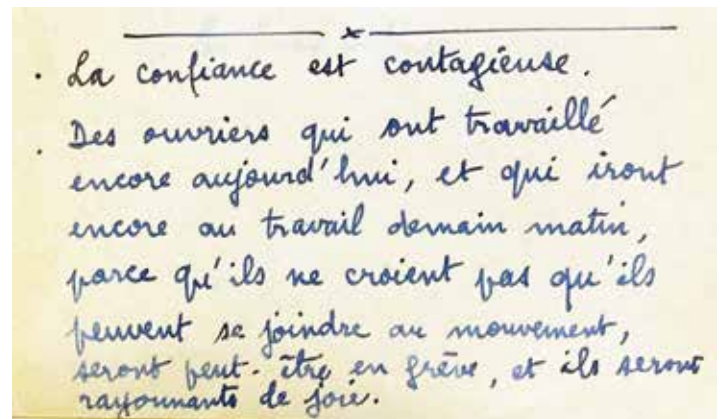 . La confiance est contagieuse.
. Des ouvriers qui ont travaillé
encore aujourd'hui, et qui iront
encore au travail demain matin,
parce qu'ils ne croient pas qu'ils
peuvent se joindre au mouvement,
seront peut-être en grève, et ils seront
rayonnants de joie.